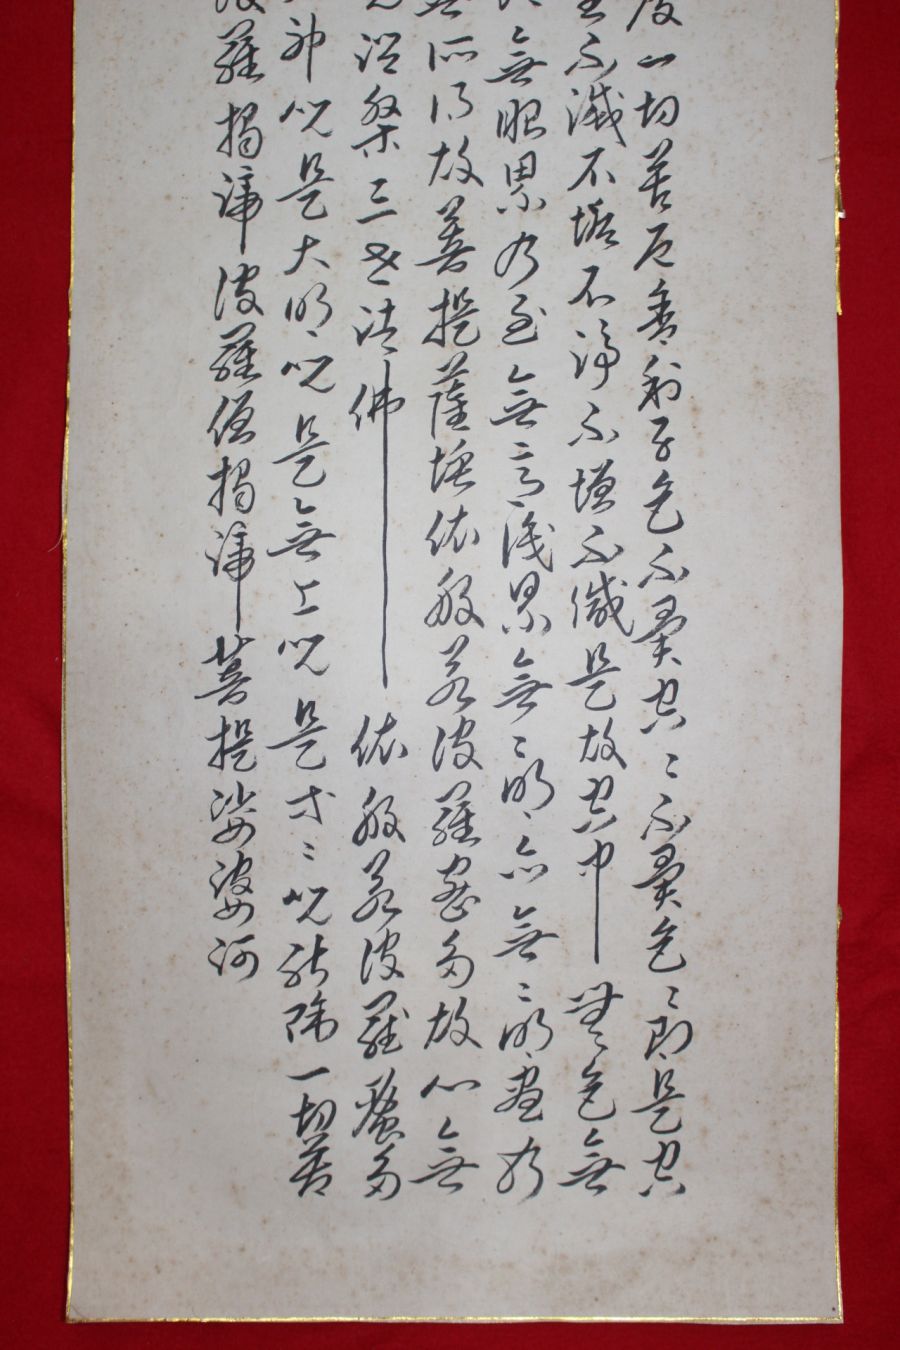 度一切苦厄舍利子色不異空々不異色々即是空
生不滅不垢不浄不増不減是故空中無色無
無眼界乃至無意識界無々明亦無々明盡乃
無所得故菩提薩埵依般若波羅蜜多故心無
竟涅槃三世諸佛依般若波羅蜜多
神呪是大明呪是無上呪是等々呪能除一切苦
波羅揭諦波羅僧揭諦菩提娑婆訶